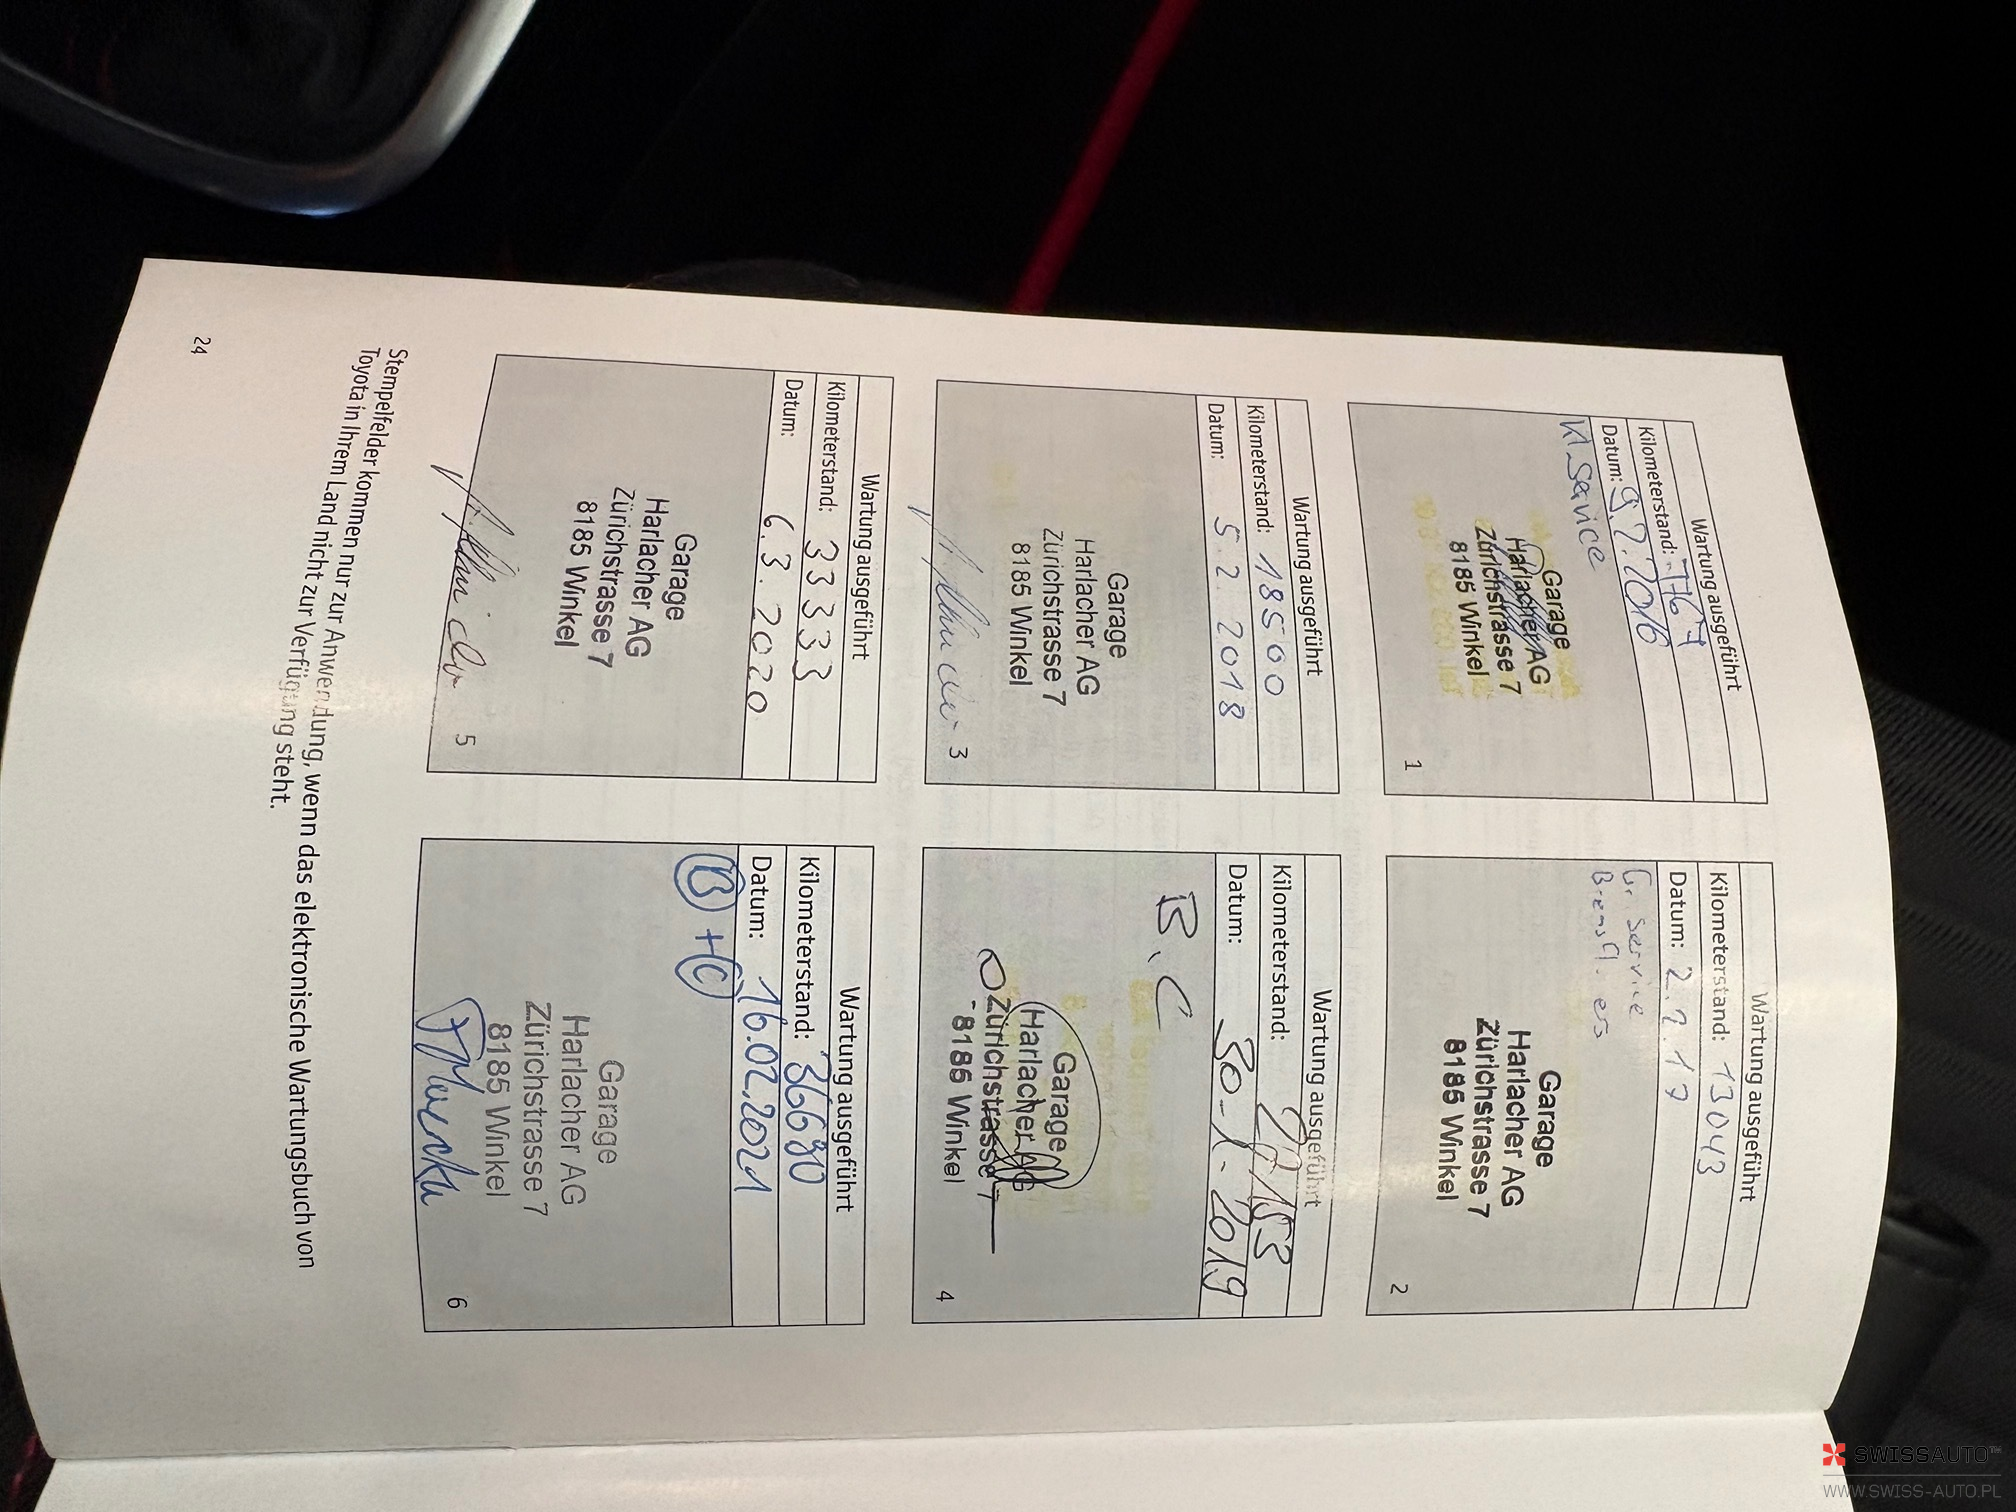 Wartung ausgeführt
Kilometerstand: 7767
Datum: 9.2.2016
Kl Service
Garage
Harlacher AG
Zürichstrasse 7
8185 Winkel
1
Wartung ausgeführt
Kilometerstand: 13043
Datum: 2.2.17
Gr. Service
Bremsfl. ers
Garage
Harlacher AG
Zürichstrasse 7
8185 Winkel
2
Wartung ausgeführt
Kilometerstand: 18500
Datum: 5.2.2018
Garage
Harlacher AG
Zürichstrasse 7
8185 Winkel
3
Wartung ausgeführt
Kilometerstand:
Datum: 30.1.2019
B.C
Garage
Harlacher AG
Zürichstrasse 7
8185 Winkel
4
Wartung ausgeführt
Kilometerstand: 33333
Datum: 6.3.2020
Garage
Harlacher AG
Zürichstrasse 7
8185 Winkel
5
Wartung ausgeführt
Kilometerstand: 36630
Datum: 16.02.2021
B + C
Garage
Harlacher AG
Zürichstrasse 7
8185 Winkel
6
Stempelfelder kommen nur zur Anwendung, wenn das elektronische Wartungsbuch von
Toyota in Ihrem Land nicht zur Verfügung steht.
24
SWISSAUTO™
WWW.SWISS-AUTO.PL